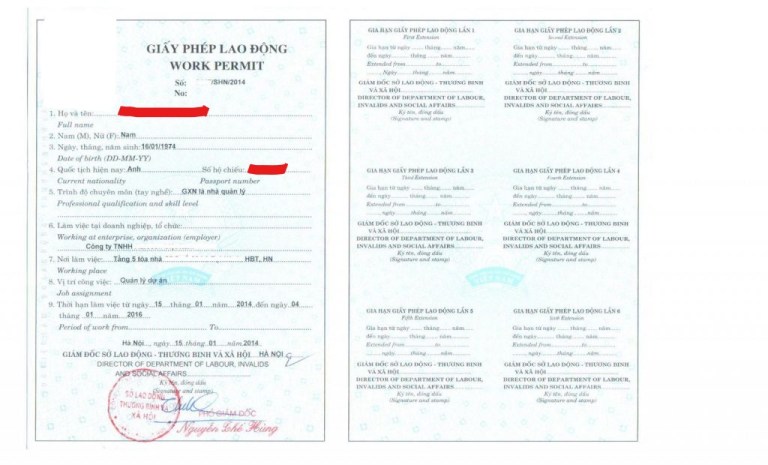 GIẤY PHÉP LAO ĐỘNG
WORK PERMIT
Số: /SHN/2014
No:
1. Họ và tên:
Full name
2. Nam (M), Nữ (F): Nam
3. Ngày, tháng, năm sinh: 16/01/1974
Date of birth (DD-MM-YY)
4. Quốc tịch hiện nay: Anh Số hộ chiếu:
Current nationality Passport number
5. Trình độ chuyên môn (tay nghề): GXN là nhà quản lý
Professional qualification and skill level
6. Làm việc tại doanh nghiệp, tổ chức:
Working at enterprise, organization (employer)
Công ty TNHH
7. Nơi làm việc: Tầng 5 tòa nhà HBT, HN
Working place
8. Vị trí công việc: Quản lý dự án
Job assignment
9. Thời hạn làm việc từ ngày 15 tháng 01 năm 2014 đến ngày 04
tháng 01 năm 2016
Period of work from To
Hà Nội, ngày 15 tháng 01 năm 2014
GIÁM ĐỐC SỞ LAO ĐỘNG - THƯƠNG BINH VÀ XÃ HỘI HÀ NỘI
DIRECTOR OF DEPARTMENT OF LABOUR, INVALIDS
AND SOCIAL AFFAIRS
Ký tên, đóng dấu
(Signature and stamp)
SỞ LAO ĐỘNG
THƯƠNG BINH VÀ
XÃ HỘI
PHÓ GIÁM ĐỐC
Nguyễn Chí Hùng
GIA HẠN GIẤY PHÉP LAO ĐỘNG LẦN 1
First Extension
Gia hạn từ ngày ...... tháng ...... năm......
đến ngày ...... tháng ...... năm......
Extended from to
Ngày ...... tháng ...... năm......
GIÁM ĐỐC SỞ LAO ĐỘNG - THƯƠNG BINH
VÀ XÃ HỘI
DIRECTOR OF DEPARTMENT OF LABOUR,
INVALIDS AND SOCIAL AFFAIRS
Ký tên, đóng dấu
(Signature and stamp)
GIA HẠN GIẤY PHÉP LAO ĐỘNG LẦN 2
Second Extension
Gia hạn từ ngày ...... tháng ...... năm......
đến ngày ...... tháng ...... năm......
Extended from to
ngày ...... tháng ...... năm......
GIÁM ĐỐC SỞ LAO ĐỘNG - THƯƠNG BINH
VÀ XÃ HỘI
DIRECTOR OF DEPARTMENT OF LABOUR,
INVALIDS AND SOCIAL AFFAIRS
Ký tên, đóng dấu
(Signature and stamp)
GIA HẠN GIẤY PHÉP LAO ĐỘNG LẦN 3
Third Extension
Gia hạn từ ngày ...... tháng ...... năm......
đến ngày ...... tháng ...... năm......
Extended from to
ngày ...... tháng ...... năm......
GIÁM ĐỐC SỞ LAO ĐỘNG - THƯƠNG BINH
VÀ XÃ HỘI
DIRECTOR OF DEPARTMENT OF LABOUR,
INVALIDS AND SOCIAL AFFAIRS
Ký tên, đóng dấu
(Signature and stamp)
GIA HẠN GIẤY PHÉP LAO ĐỘNG LẦN 4
Fourth Extension
Gia hạn từ ngày ...... tháng ...... năm......
đến ngày ...... tháng ...... năm......
Extended from to
ngày ...... tháng ...... năm......
GIÁM ĐỐC SỞ LAO ĐỘNG - THƯƠNG BINH
VÀ XÃ HỘI
DIRECTOR OF DEPARTMENT OF LABOUR,
INVALIDS AND SOCIAL AFFAIRS
Ký tên, đóng dấu
(Signature and stamp)
GIA HẠN GIẤY PHÉP LAO ĐỘNG LẦN 5
Fifth Extension
Gia hạn từ ngày ...... tháng ...... năm......
đến ngày ...... tháng ...... năm......
Extended from to
ngày ...... tháng ...... năm......
GIÁM ĐỐC SỞ LAO ĐỘNG - THƯƠNG BINH
VÀ XÃ HỘI
DIRECTOR OF DEPARTMENT OF LABOUR,
INVALIDS AND SOCIAL AFFAIRS
Ký tên, đóng dấu
(Signature and stamp)
GIA HẠN GIẤY PHÉP LAO ĐỘNG LẦN 6
Extension
Gia hạn từ ngày ...... tháng ...... năm......
đến ngày ...... tháng ...... năm......
Extended from to
ngày ...... tháng ...... năm......
GIÁM ĐỐC SỞ LAO ĐỘNG - THƯƠNG BINH
VÀ XÃ HỘI
DIRECTOR OF DEPARTMENT OF LABOUR,
INVALIDS AND SOCIAL AFFAIRS
Ký tên, đóng dấu
(Signature and stamp)